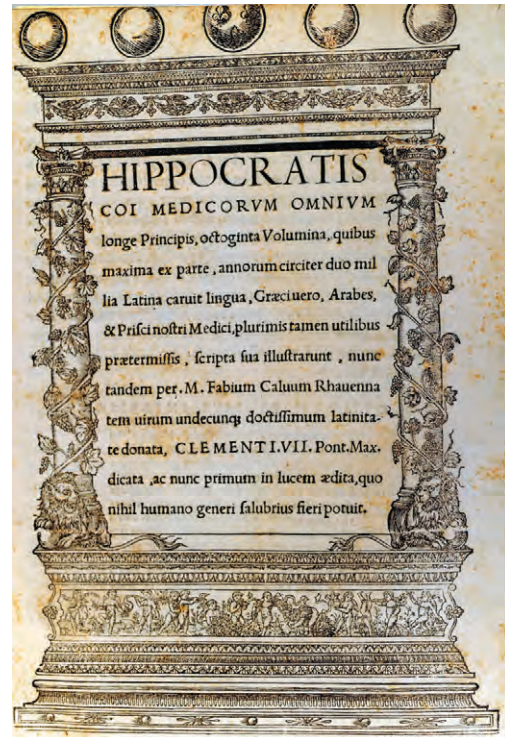 HIPPOCRATIS
COI MEDICORVM OMNIVM
longe Principis, octoginta Volumina, quibus
maxima ex parte, annorum circiter duo mil
lia Latina caruit lingua, Græci uero, Arabes,
& Priſci noſtri Medici, plurimis tamen utilibus
prætermiſſis, ſcripta ſua illuſtrarunt, nunc
tandem per. M. Fabium Caluum Rhauenna
tem uirum undecunqꝫ doctiſſimum latinita-
te donata, CLEMENTI.VII. Pont.Max.
dicata, ac nunc primum in lucem ædita, quo
nihil humano generi ſalubrius fieri potuit.